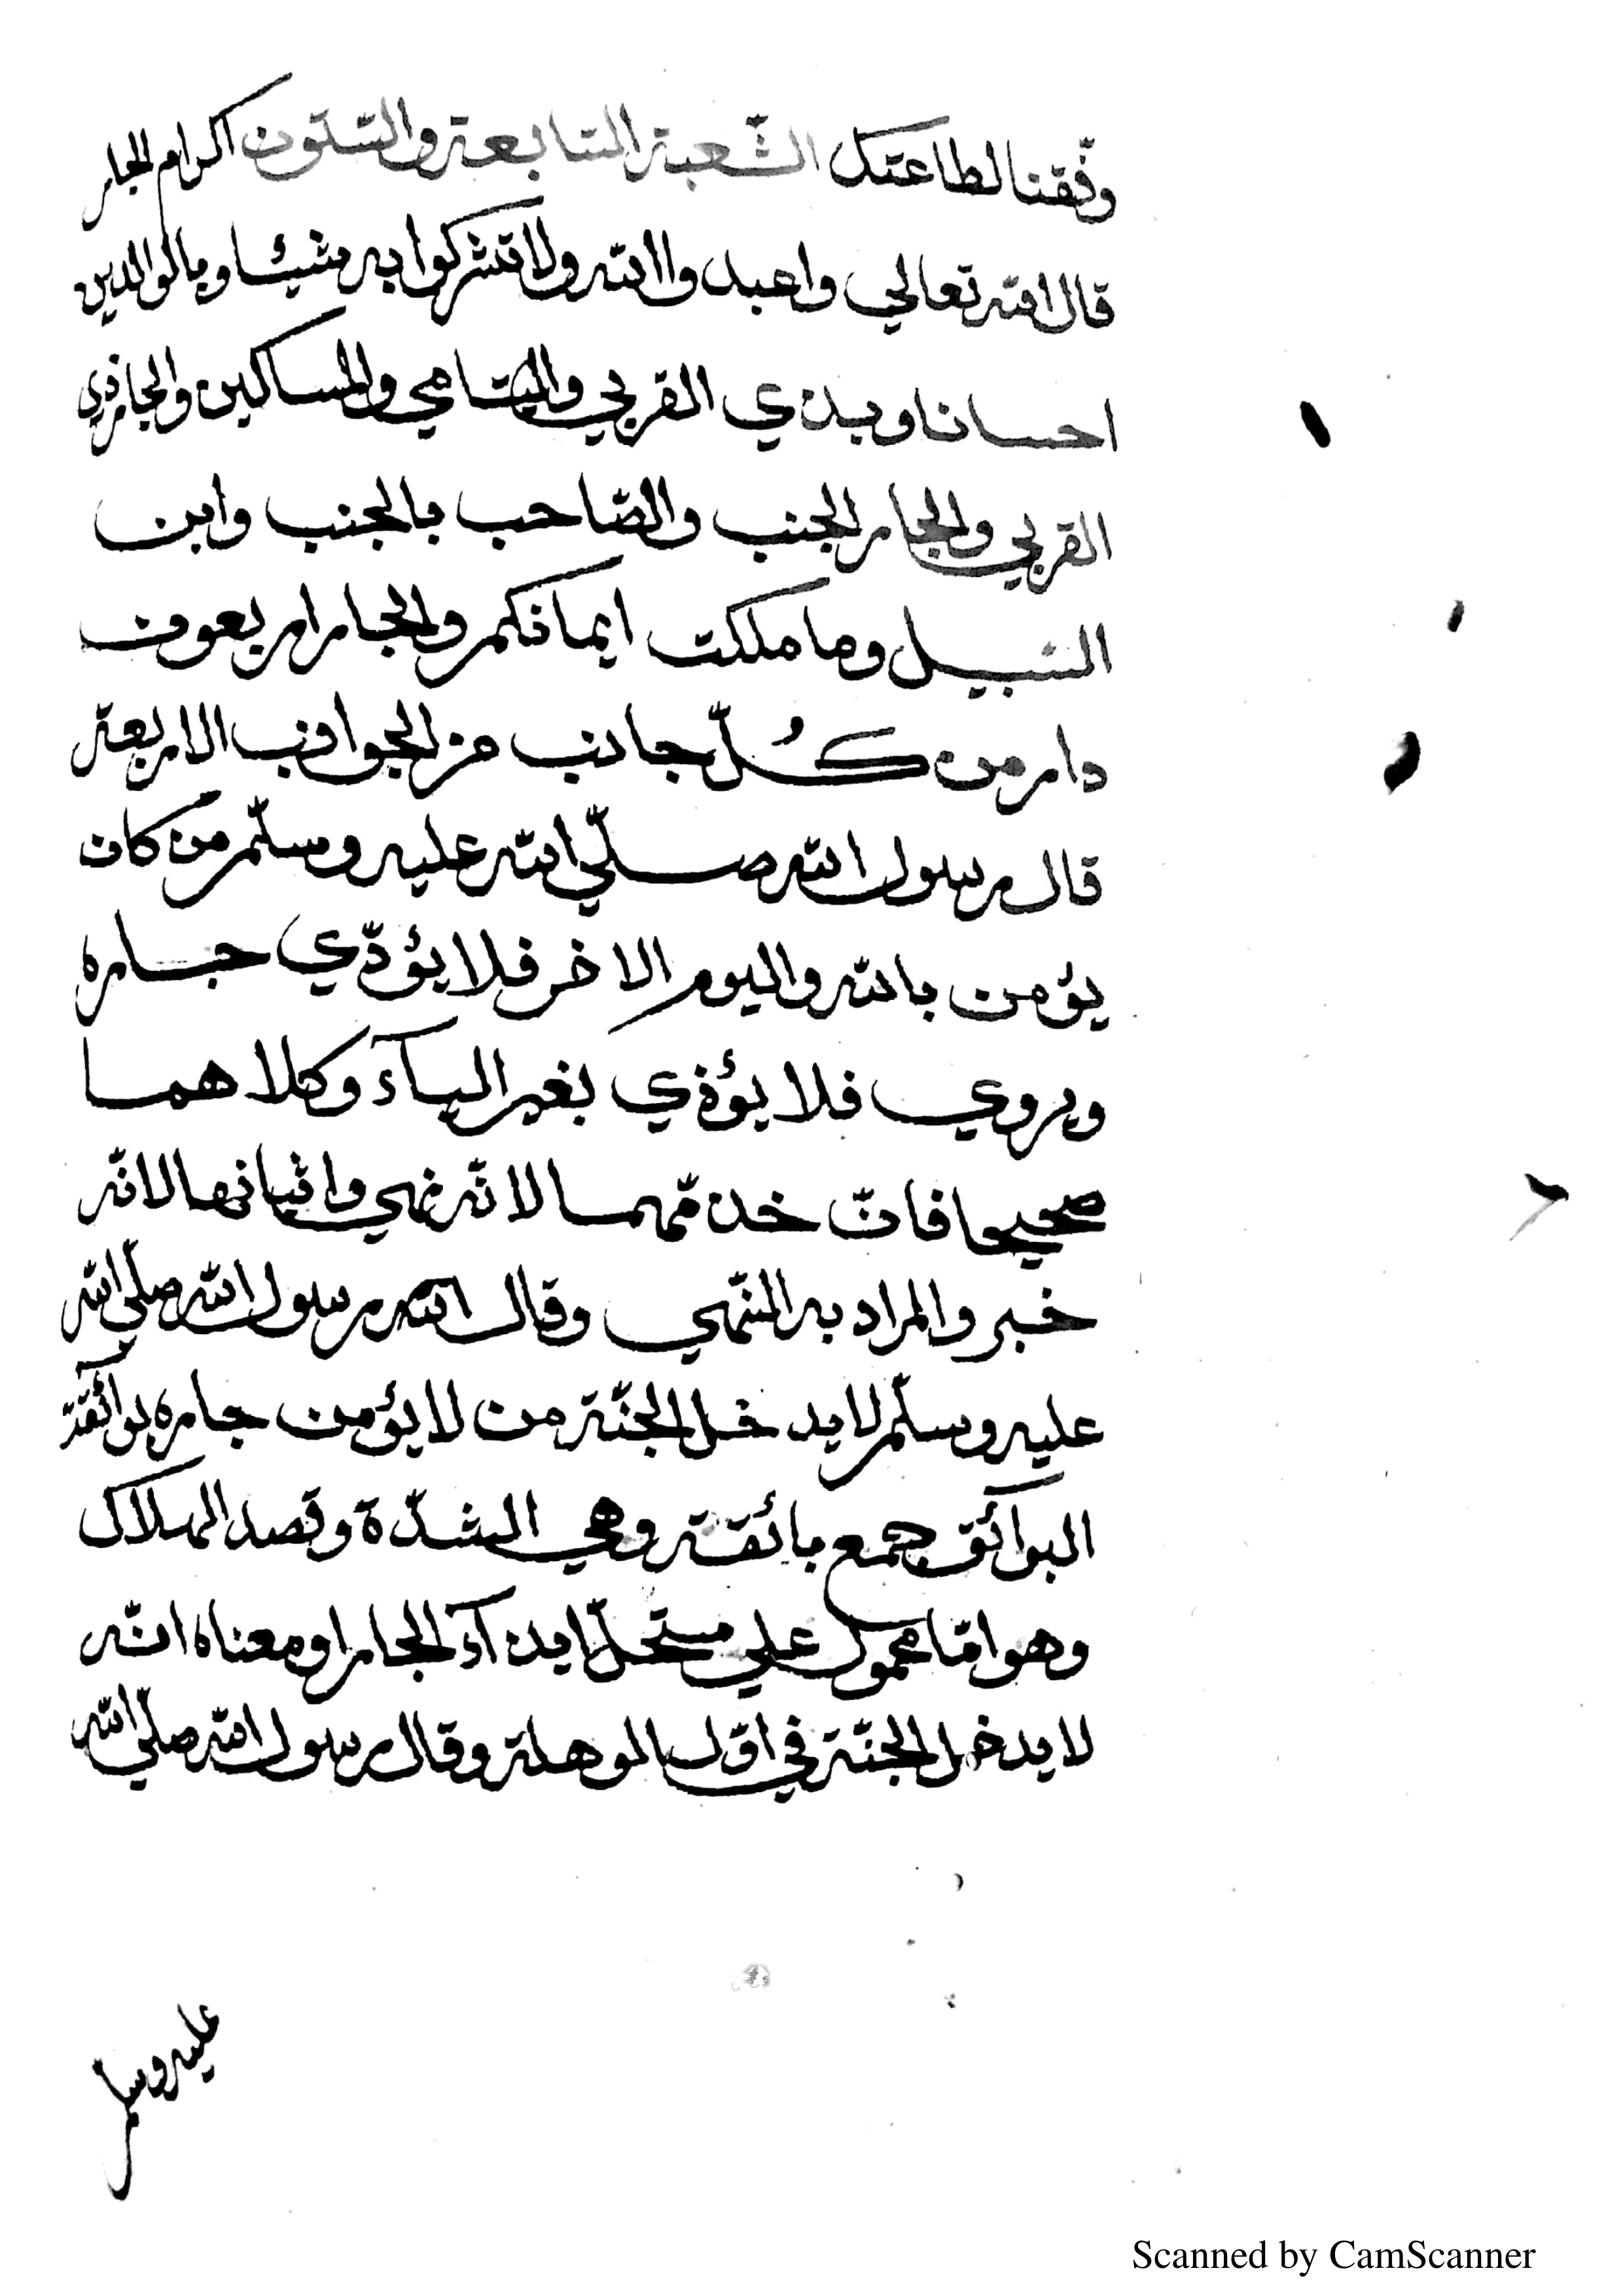 وفّقنا لطاعتك الشّعبة السّابعة والستّون اكرام الجار
قال الله تعالي واعبدوا الله ولا تشركوا به شيئا وبالوالدين
احسانا وبذي القربي واليتامي والمساكين والجار ذي
القربي والجار الجنب والصّاحب بالجنب وابن
السّبيل وما ملكت ايمانكم والجار اربعون
دار من كُلّ جانب من الجوانب الاربعة
قال رسول الله صلّي الله عليه وسلّم من كان
يؤمن بالله واليوم الاخر فلا يؤذّي جاره
وروي فلا يؤذي بغير اليآء وكلاهما
صحيحا فانّ حذفهما لانّه نهي واثباتها لانّه
خبر والمراد به النّهي وقال رسول الله صلّي الله
عليه وسلّم لا يدخل الجنّة من لا يؤمن جاره بوآئقه
البوآئق جمع بائقة وهي الشدّة وقصد الهلاك
وهو امّا محمول علي مستحلّ ايذآء الجار او معناه انّه
لا يدخل الجنّة في اوّل الوهلة وقال رسول الله صلّي الله
عليه وسلم
Scanned by CamScanner